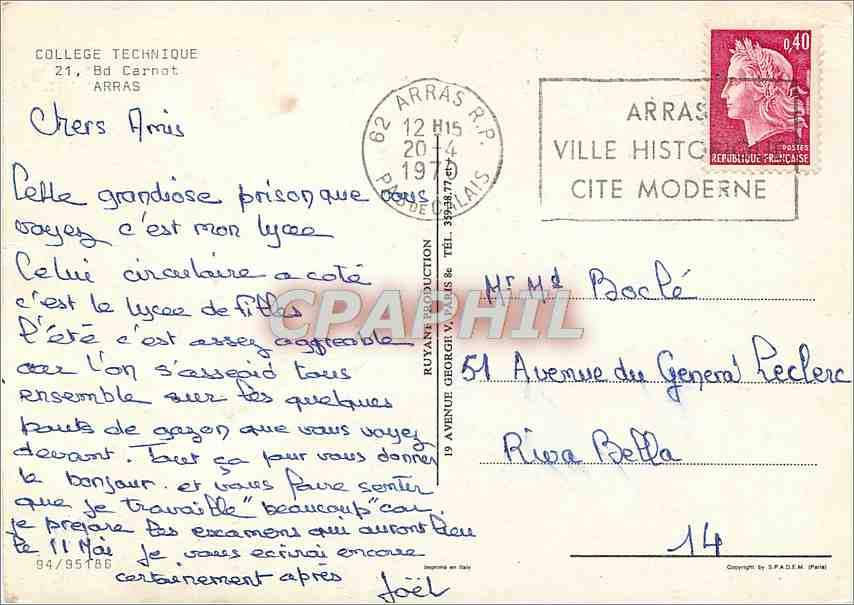 COLLEGE TECHNIQUE
21, Bd Carnot
ARRAS
Chers Amis
Cette grandiose prison que vous
voyez c'est mon lycee
Celui circulaire a coté
c'est le lycee de filles
l'été c'est assez aggreable
car l'on s'asseoid tous
ensemble sur les quelques
bouts de gazon que vous voyez
devant. Tout ça pour vous donner
le bonjour et vous faire sentir
que je travaille "beaucoup" car
je prépare les examens qui auront lieu
le 11 Mai je vous ecrirai encore
certainement après
Joël
94/95186
62 ARRAS R.P.
12 H15
20-4
197
PAS DE CALAIS
ARRAS
VILLE HISTO
CITE MODERNE
0,40
POSTES
REPUBLIQUE FRANÇAISE
RUYANT PRODUCTION
19 AVENUE GEORGE V, PARIS 8e TÉL. 359.38.77 et +
CPAPHIL
Mr Md Boclé
51 Avenue du General Leclerc
Riva Bella
14
Imprimé en Italy
Copyright by S.P.A.D.E.M. (Paris)